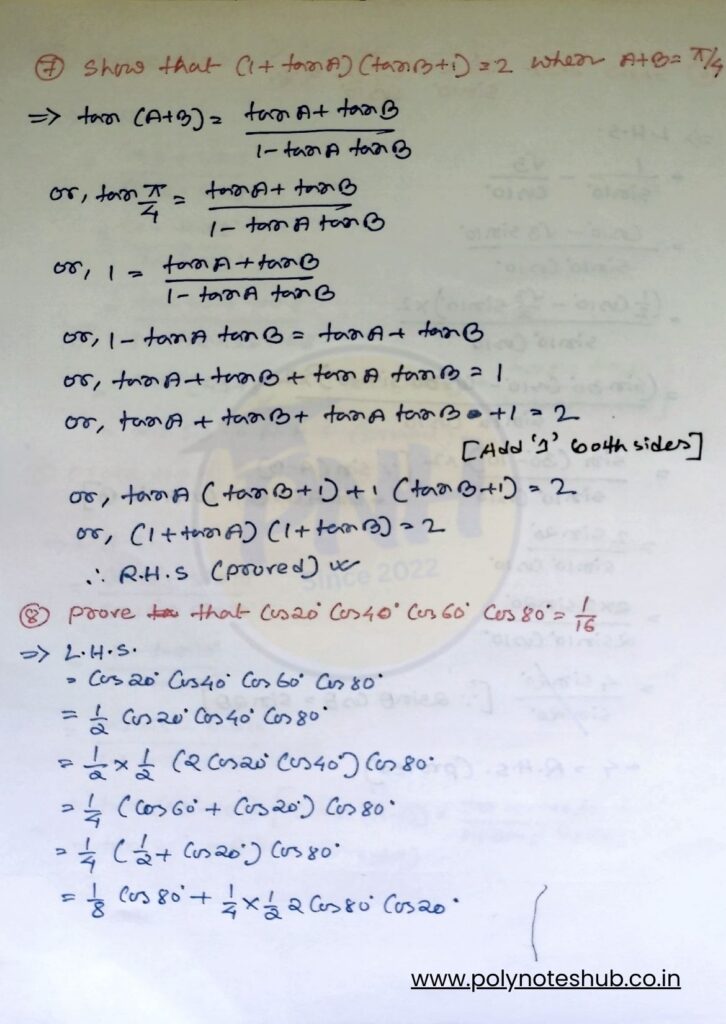 ⑦ Show that (1 + tanA) (tanB+1) = 2 when A+B = π/4
=> tan (A+B) = (tanA + tanB)/(1 - tanA tanB)
or, tan π/4 = (tanA + tanB)/(1 - tanA tanB)
or, 1 = (tanA + tanB)/(1 - tanA tanB)
or, 1 - tanA tanB = tanA + tanB
or, tanA + tanB + tanA tanB = 1
or, tanA + tanB + tanA tanB +1 = 2
[Add '1' both sides]
or, tanA (tanB+1) + 1 (tanB+1) = 2
or, (1+tanA) (1+tanB) = 2
∴ R.H.S (proved)
PNH
Since 2022
⑧ Prove that Cos20° Cos40° Cos60° Cos80° = 1/16
=> L.H.S.
= Cos20° Cos40° Cos60° Cos80°
= 1/2 Cos20° Cos40° Cos80°
= 1/2 × 1/2 (2 Cos20° Cos40°) Cos80°
= 1/4 (Cos60° + Cos20°) Cos80°
= 1/4 (1/2 + Cos20°) Cos80°
= 1/8 Cos80° + 1/4 × 1/2 2 Cos80° Cos20°
www.polynoteshub.co.in